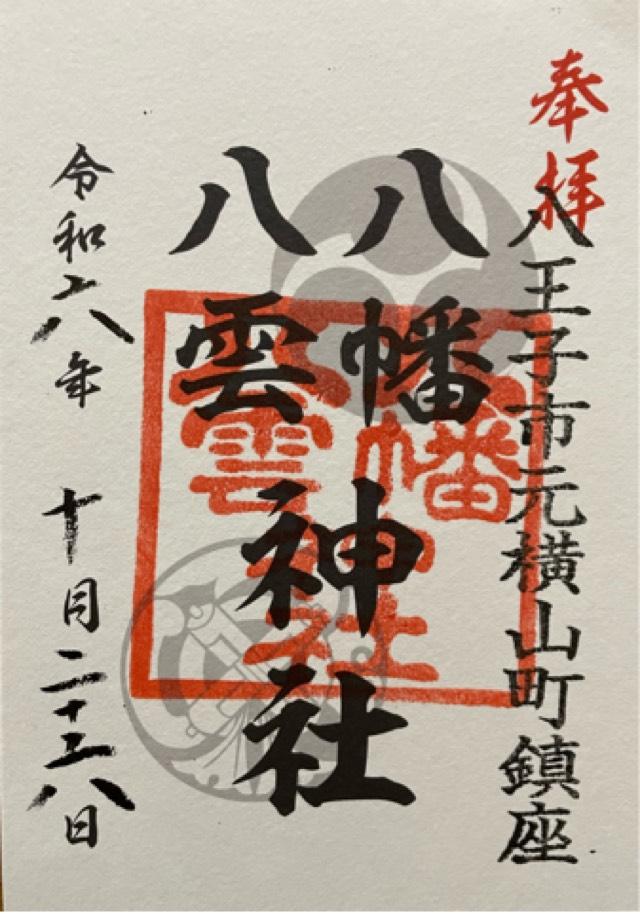 奉拝
八王子市元横山町鎮座
八幡
八雲
神社
八幡
八雲
神社
令和六年 十月二十六日